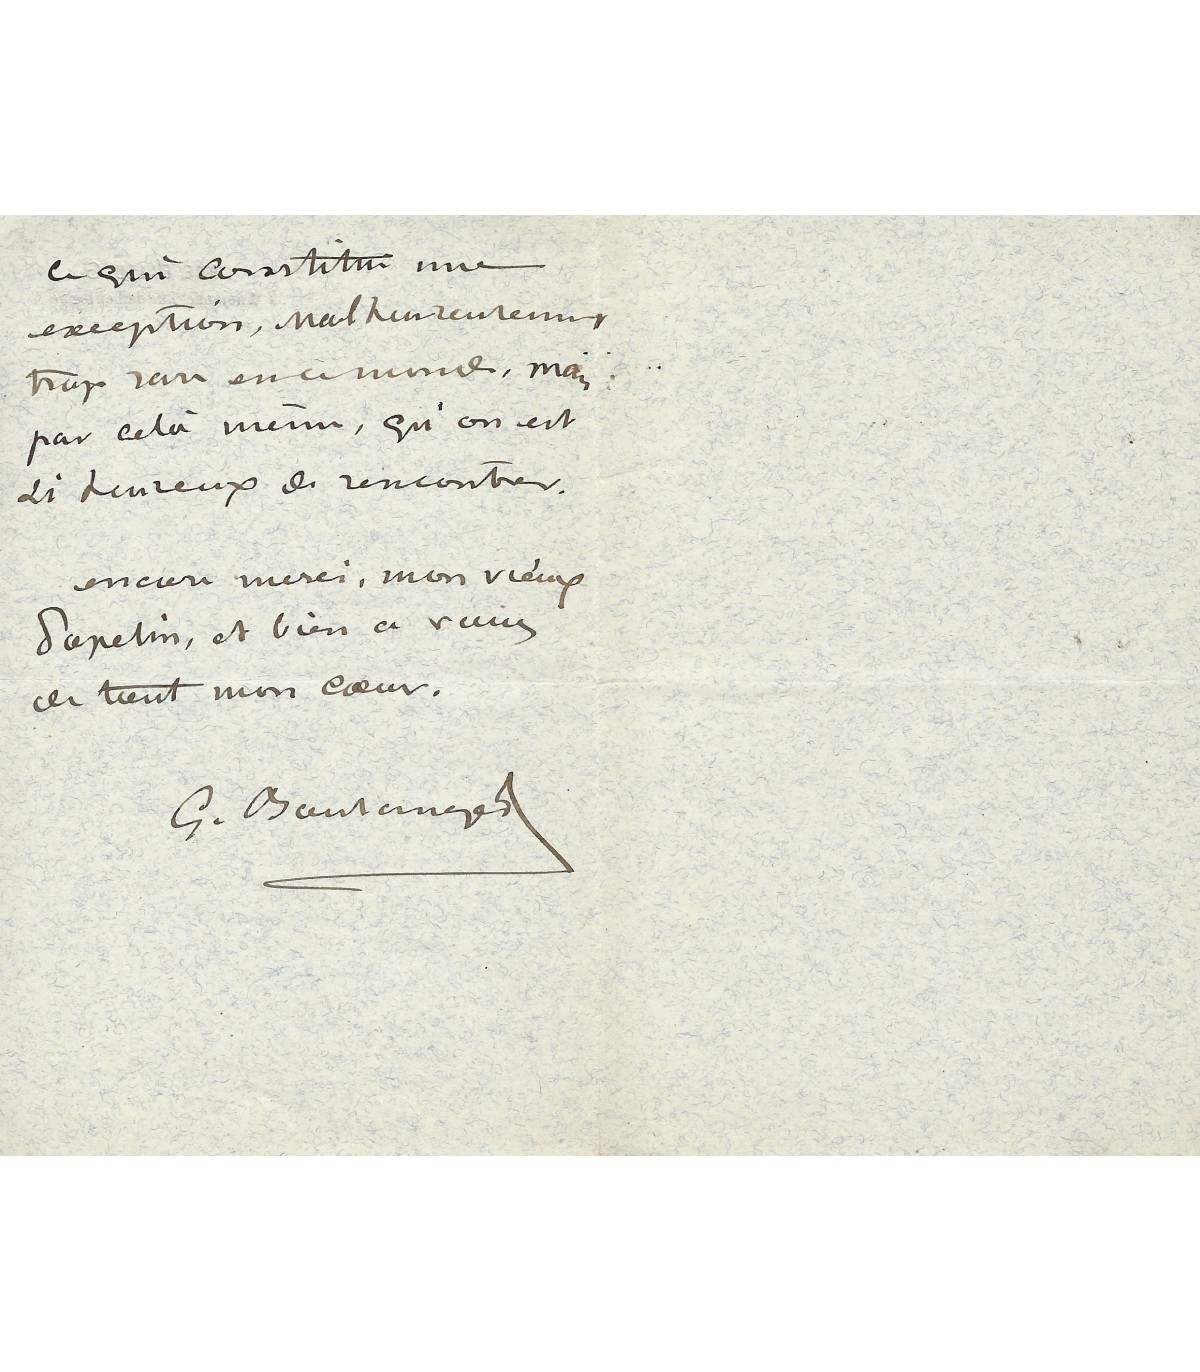 ce qui constitue une
exception, malheureusement
trop rare en ce monde, mais
par celà même, qu'on est
si heureux de rencontrer.
encore merci, mon vieux
et bien a vous
de tout mon cœur.
G.